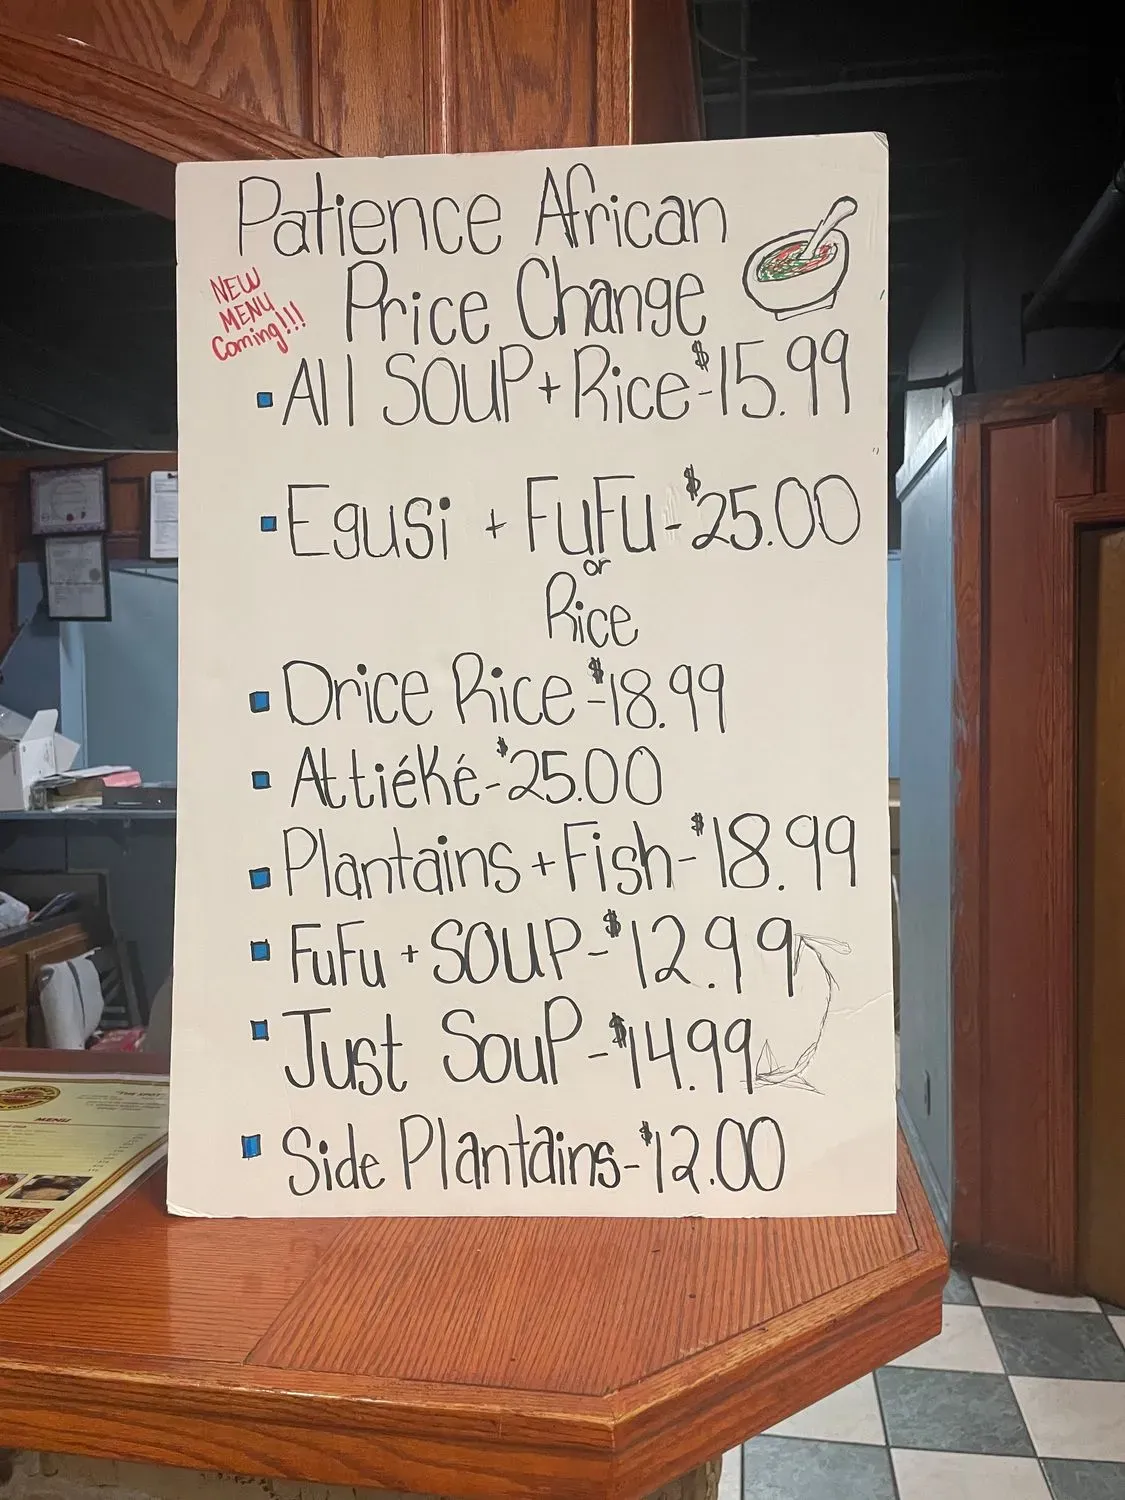 Patience African
Price Change
NEW
MENU
Coming!!!
All SOUP + Rice - $15.99
Egusi + FuFu - $25.00
or
Rice
Drice Rice - $18.99
Attiéké - $25.00
Plantains + Fish - $18.99
FuFu + SOUP - $12.99
Just SouP - $14.99
Side Plantains - $12.00
"THE SPOT"
MENU